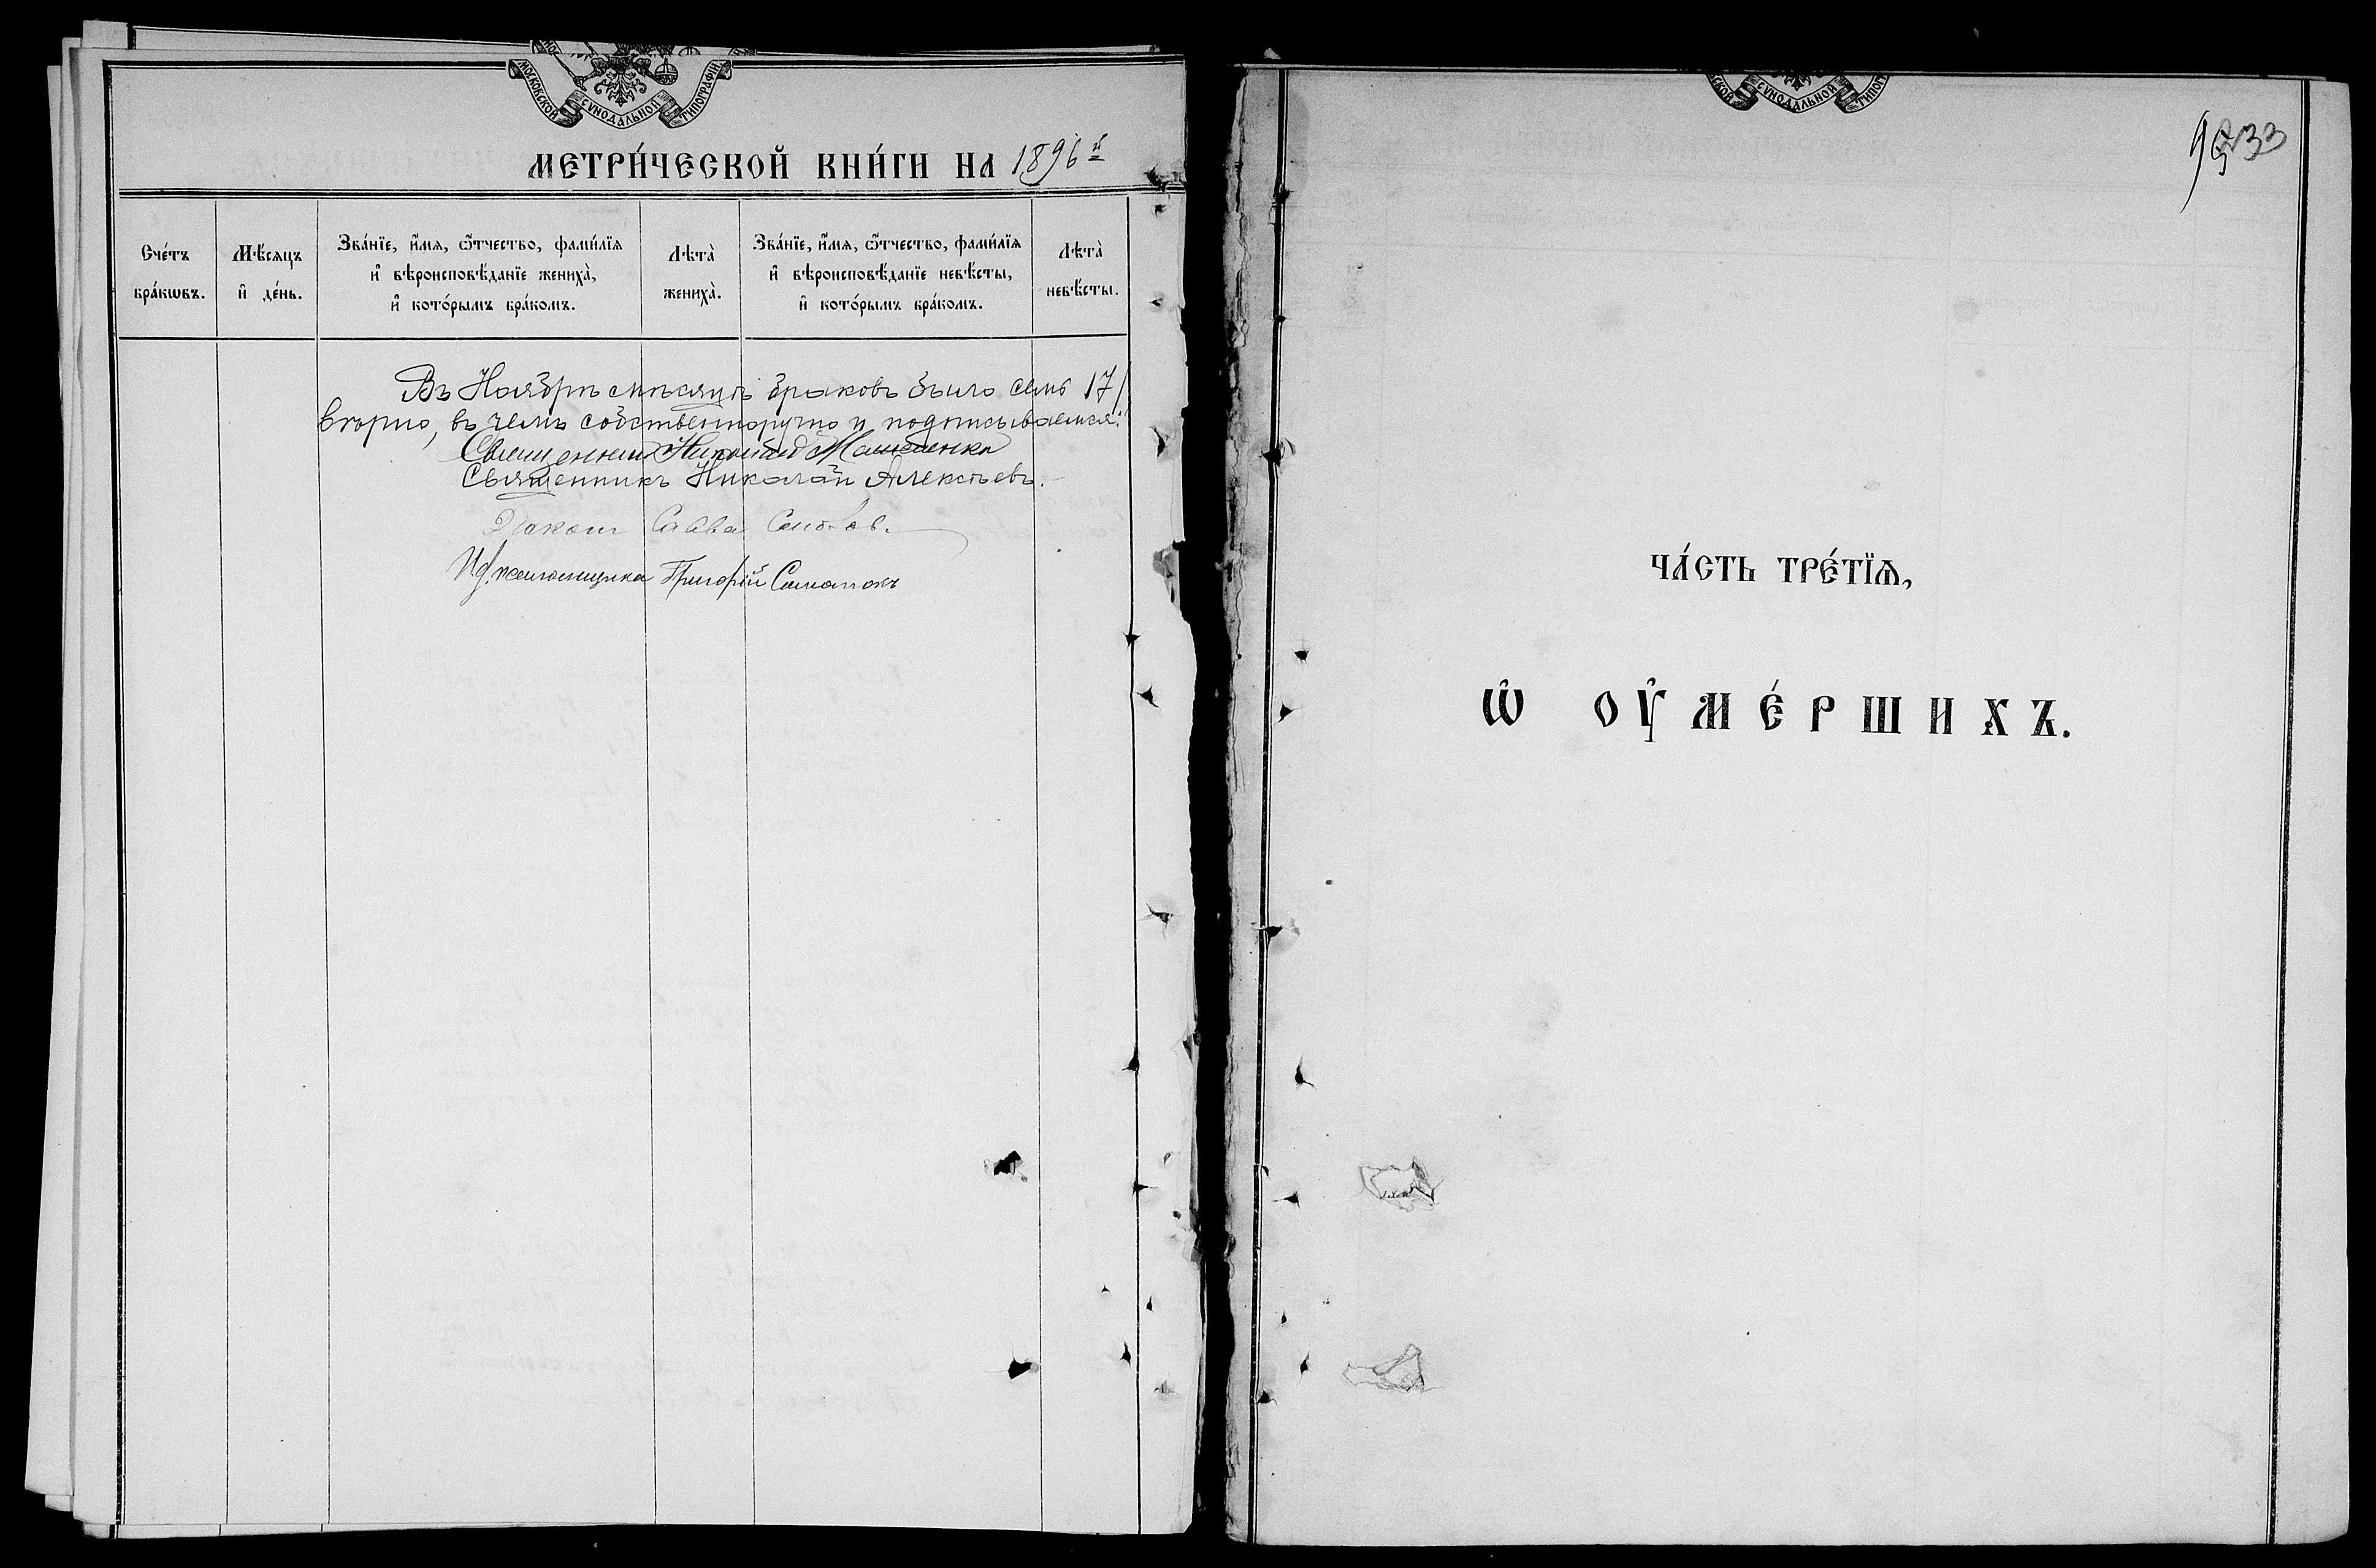 МОСКОВСКОЙ СѴНОДАЛЬНОЙ ТИПОГРАФІИ
МЕТРИ́ЧЕСКОЙ КНИ́ГИ НА 1896й
Сче́тъ бра́кѡвъ.
Мѣ́сяцъ и҆ де́нь.
Зва́нїе, и҆́мѧ, ѻ҆́тчество, фами́лїѧ
и҆ вѣроисповѣ́данїе жениха̀,
и҆ кото́рымъ бра́комъ.
Лѣта̀ жениха̀.
Зва́нїе, и҆́мѧ, ѻ҆́тчество, фами́лїѧ
и҆ вѣроисповѣ́данїе невѣ́сты,
и҆ кото́рымъ бра́комъ.
Лѣта̀ невѣ́сты.
Въ Ноябрѣ мѣсяцѣ браковъ было семь /7/
вѣрно, въ чемъ собственноручно и подписываемся:
Священникъ
Священникъ Николай Алексѣевъ.
Діаконъ Савва
И. д. псаломщика Григорій
СѴНОДАЛЬНОЙ ТИПОГР
233
95
ЧА́СТЬ ТРЕ́ТЇѦ,
Ѡ҆ ОУ҆МЕ́РШИХЪ.